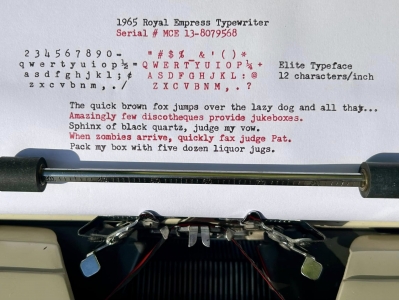 1965 Royal Empress Typewriter
Serial # MCE 13-8079568
2 3 4 5 6 7 8 9 0 - " # $ % _ & ' ( ) *
q w e r t y u i o p ½ = Q W E R T Y U I O P ¼ + Elite Typeface
a s d f g h j k l ; ¢ A S D F G H J K L : @ 12 characters/inch
z x c v b n m , . / Z X C V B N M , . ?
The quick brown fox jumps over the lazy dog and all that...
Amazingly few discotheques provide jukeboxes.
Sphinx of black quartz, judge my vow.
When zombies arrive, quickly fax judge Pat.
Pack my box with five dozen liquor jugs.